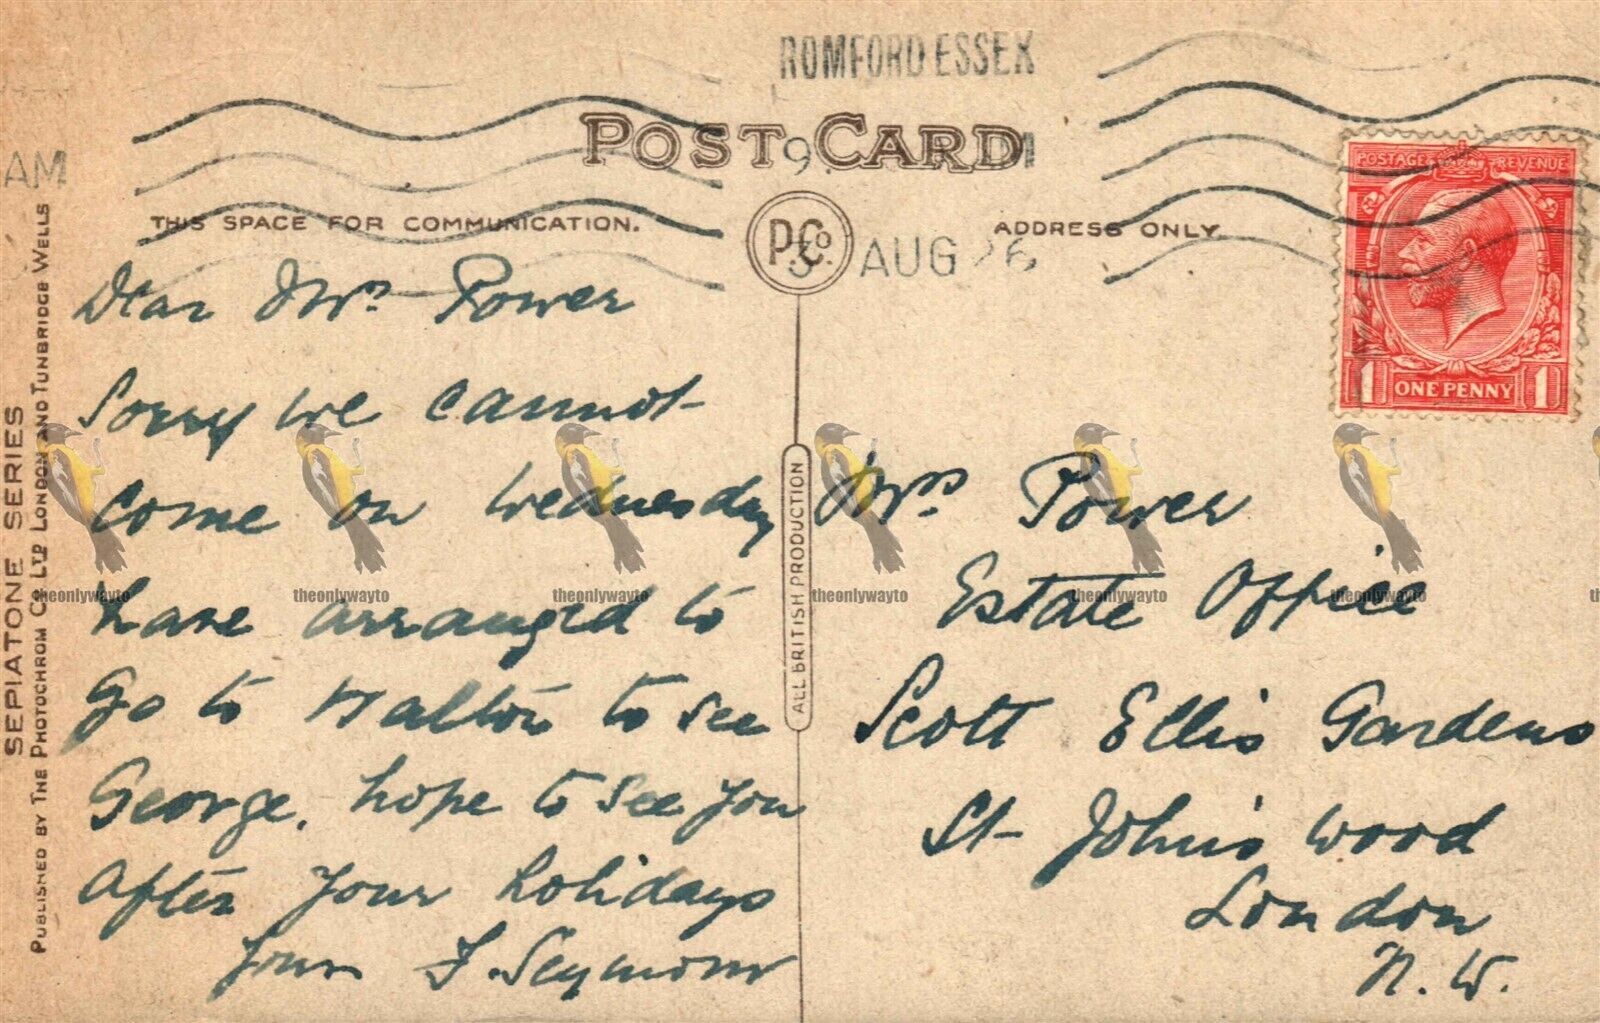 ROMFORD ESSEX
POST CARD
AM
THIS SPACE FOR COMMUNICATION.
P.Co.
ADDRESS ONLY.
3 AUG 26
POSTAGE REVENUE
1 ONE PENNY 1
SEPIATONE SERIES
PUBLISHED BY THE PHOTOCHROM CO. LTD LONDON AND TUNBRIDGE WELLS
ALL BRITISH PRODUCTION
Dear Mrs. Power
Sorry we cannot
come on Wednesday
have arranged to
go to Walton to see
George. hope to see you
after your holidays
Yours F. Seymour
Mrs. Power
Estate Office
Scott Ellis Gardens
St John's Wood
London
N.W.
theonlywayto theonlywayto theonlywayto theonlywayto theonlywayto theonlywayto